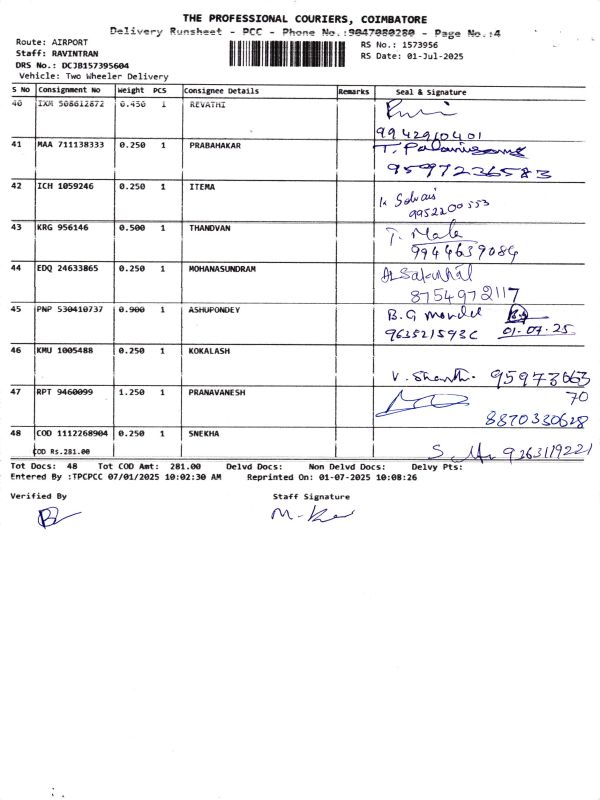 THE PROFESSIONAL COURIERS, COIMBATORE
Delivery Runsheet - PCC - Phone No.:9047080280 - Page No.:4
Route: AIRPORT
Staff: RAVINTRAN
DRS No.: DCJB157395604
Vehicle: Two Wheeler Delivery
RS No.: 1573956
RS Date: 01-Jul-2025
S No Consignment No Weight PCS Consignee Details Remarks Seal & Signature
40 IXM 508612872 0.450 1 REVATHI
9942910401
41 MAA 711138333 0.250 1 PRABAHAKAR T. Palanisamy
9597236583
42 ICH 1059246 0.250 1 ITEMA
K Selvais
9952200553
43 KRG 956146 0.500 1 THANDVAN T. Mala
9944639084
44 EDQ 24633865 0.250 1 MOHANASUNDRAM
8754972117
45 PNP 530410737 0.900 1 ASHUPONDEY B.G Mondel
01-07-25
46 KMU 1005488 0.250 1 KOKALASH
V. Shanthi 95973663
70
47 RPT 9460099 1.250 1 PRANAVANESH
8870330628
48 COD 1112268904 0.250 1 SNEKHA
COD Rs.281.00
9263119221
Tot Docs: 48 Tot COD Amt: 281.00 Delvd Docs: Non Delvd Docs: Delvy Pts:
Entered By :TPCPCC 07/01/2025 10:02:30 AM Reprinted On: 01-07-2025 10:08:26
Verified By Staff Signature